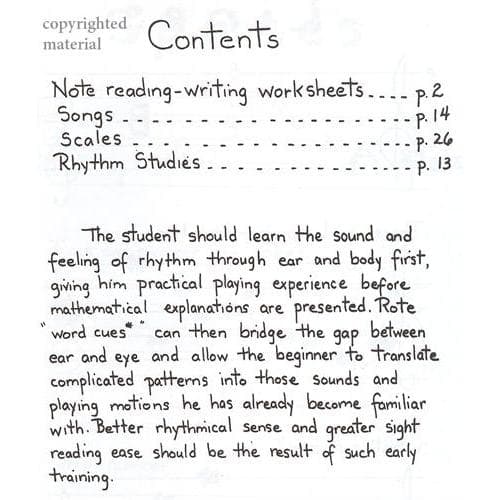 copyrighted
material
Contents
Note reading-writing worksheets.... p.2
Songs - - - - - - - - - - - - - - - - - - - - p.14
Scales - - - - - - - - - - - - - - - - - - - p. 26
Rhythm Studies - - - - - - - - - - - - - - p. 13
The student should learn the sound and
feeling of rhythm through ear and body first,
giving him practical playing experience before
mathematical explanations are presented. Rote
"word cues*" can then bridge the gap between
ear and eye and allow the beginner to translate
complicated patterns into those sounds and
playing motions he has already become familiar
with. Better rhythmical sense and greater sight
reading ease should be the result of such early
training.